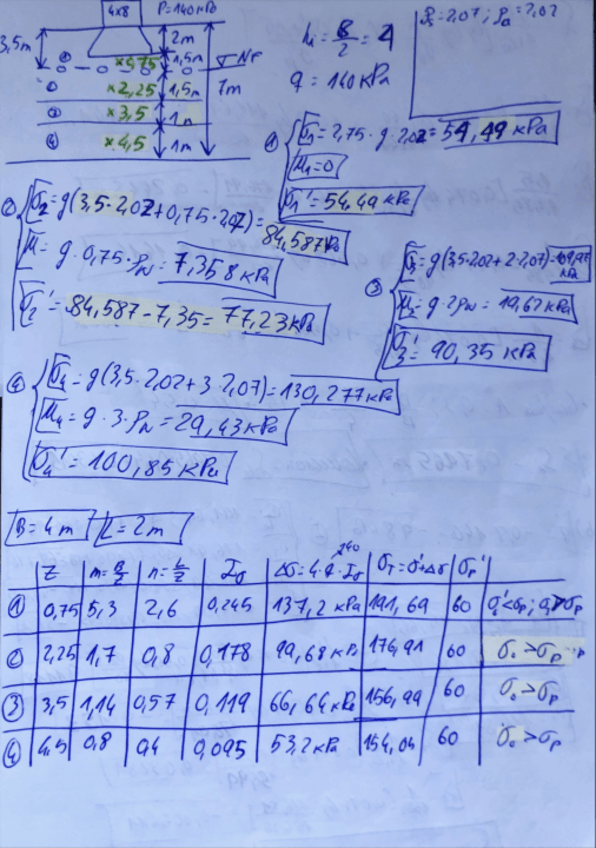 4x8 P=140kPa
3,5m
2m
1,5m NF
① x0,75
② x2,25 1,5m 7m
③ x3,5 1m
④ x4,5 1m
q = 140 kPa
① σ₁ = 2,75 · g · 2,02 = 54,49 kPa
μ₁ = 0
σ₁' = 54,49 kPa
② σ₂ = g(3,5·2,02+0,75·2,07) = 84,587 kPa
μ = g · 0,75 · ρw = 7,358 kPa
σ₂' = 84,587 - 7,35 = 77,23 kPa
③ σ₃ = g(3,5·2,02+2·2,07) = 109,97 kPa
μ₃ = g · 2 ρw = 19,62 kPa
σ₃' = 90,35 kPa
④ σ₄ = g(3,5·2,02+3·2,07) = 130,277 kPa
μ₄ = g · 3 · ρw = 29,43 kPa
σ₄' = 100,85 kPa
B = 4 m L = 2 m
Z m=B/Z n=L/Z Iσ Δσ=4·q·Iσ σT=σ'+Δσ σp'
140
① 0,75 5,3 2,6 0,245 137,2 kPa 191,69 60 σ₁'<σp ; σT>σp
② 2,25 1,7 0,8 0,178 99,68 kPa 176,91 60 σ₀'>σp
③ 3,5 1,14 0,57 0,119 66,64 kPa 156,99 60 σ₀'>σp
④ 4,5 0,8 0,4 0,095 53,2 kPa 154,04 60 σ₀'>σp